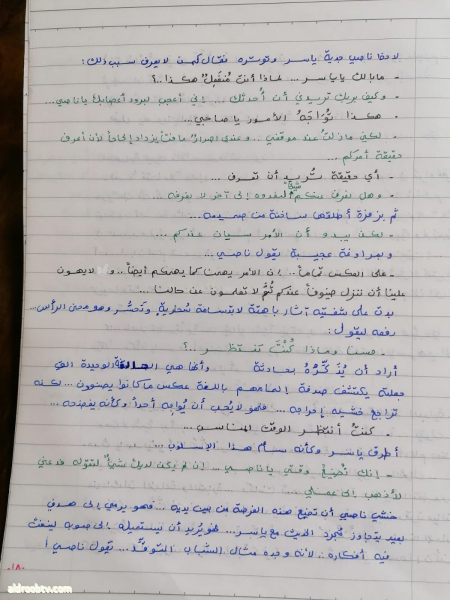 لاحظ ناصي جدية ياسر وتوتره فقال كمن لا يعرف سبب ذلك:
- ما بالك يا ياسر ... لماذا أنت مُنفعل هكذا ..؟
- وكيف بربك تريدني أن أُحدثك ... إني أعجب لبرود أعصابك يا ناصي...
- هكذا نُواجَه الأمور يا صاحبي...
- لكني ما زلتُ عند موقفي .. وعندي إصرار ما فتأ يزداد إلحاحاً لأن أعرف
حقيقة أمركم ...
- أي حقيقة تُريد أن تعرف ...
- وهل نفرق بينكم شيئاً إلى آخر لا نعرفه ...
ثم بزفرة أطلقها ساخنة من صميمه ...
- لكن يبدو أن الأمر سيان عندكم ...
وبمراوغة عجيبة يقول ناصي ..
- على العكس تماماً .. إن الأمر يهمنا كما يهمكم أيضاً ... ولا يهون
علينا أن تنزل ضيوفاً عندكم ثُمَّ لا تعلمون عن حالنا ...
بدت على شفتيه آثار باهتة لابتسامة سُخرية وتحسُّر وهو محن الرأس..
رفعه ليقول:
- حسنا وماذا كُنتَ تنتظر ..؟
أراد أن يُذكِّرَهُ بحادثة وأنها هي الحالة الوحيدة التي
جعلته يكتشف صدفة إلمامهم باللغة عكس ما كانوا يصورون ... لكنه
تراجع خشية إحراجه ... فهو لا يُحب أن يُواجه أحداً وكأنه يفضحه ...
- كنتُ أنتظر الوقت المناسب ...
أطرق ياسر وكأنه سئم هذا الأسلوب ...
- إنك تُضيعُ وقتي يا ناصي ... إن لم يكن لديك شيئاً لتقوله فدعني
لأذهب إلى عملي ...
خشي ناصي أن تضيع هذه الفرصة من بين يديه ... فهو يرمي إلى هدفٍ
بعيد يتجاوز مُجرد الحديث مع ياسر ... هو يُريد أن يستميله إلى صوبه لينفث
فيه أفكاره .. لأنه وجده مثال الشباب المتوقِّد .... يقول ناصي!
١٨٠
aldroobtv.com